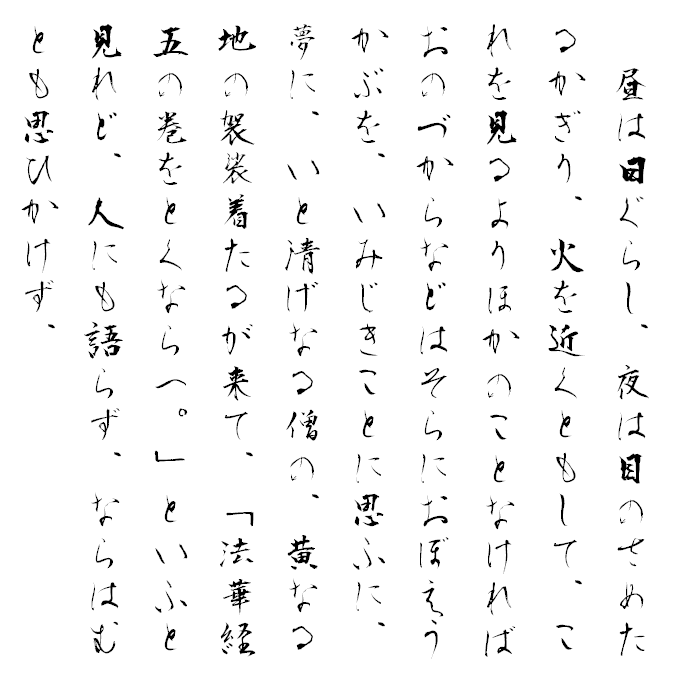 昼は日ぐらし、夜は目のさめた
るかぎり、火を近くともして、こ
れを見るよりほかのことなければ
おのづからなどはそらにおぼえう
かぶを、いみじきことに思ふに、
夢に、いと清げなる僧の、黄なる
地の袈裟着たるが来て、「法華経
五の巻をとくならへ。」といふと
見れど、人にも語らず、ならはむ
とも思ひかけず、